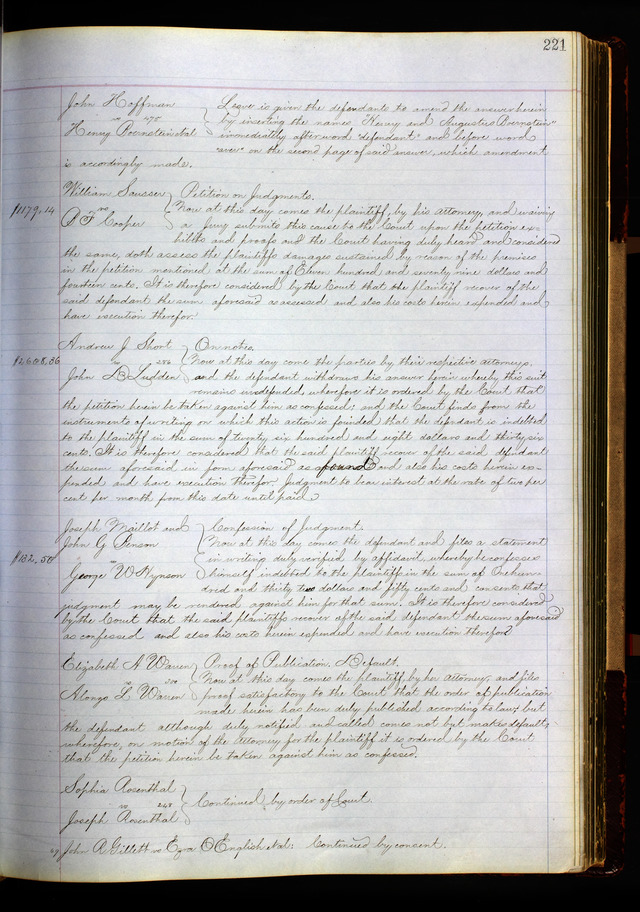 221
John Hoffman
vs 175
Henry Bornstein etal
Leave is given the defendant to amend the answer herein
by inserting the name "Henry and Augustus Bornstein"
immediately after word "defendant" and before word
"aver" on the second page of said answer, which amendment
is accordingly made.
William Sausser
vs
B F Cooper
$1179.14
Petition on Judgments.
Now at this day comes the plaintiff, by his attorney, and waiving
a jury submits this cause to the Court upon the petition ex-
hibits and proofs and the Court having duly heard and considered
the same, doth assess the plaintiffs damages sustained by reason of the premises
in the petition mentioned at the sum of Eleven hundred and seventy nine dollars and
fourteen cents. It is therefore considered by the Court that the plaintiff recover of the
said defendant the sum aforesaid as assessed and also his costs herein expended and
have execution therefor.
Andrew J Short
vs 256
John D Ludden
$2608.36
On notes.
Now at this day come the parties by their respective attorneys,
and the defendant withdraws his answer herein whereby this suit
remains undefended, wherefore it is ordered by the Court that
the petition herein be taken against him as confessed; and the Court finds from the
instruments of writing on which this action is founded that the defendant is indebted
to the plaintiff in the sum of twenty six hundred and eight dollars and thirty six
cents. It is therefore considered that the said plaintiff recover of the said defendant
the sum aforesaid in form aforesaid as found and also his costs herein ex-
pended and have execution therefor. Judgment to bear interest at the rate of two per
cent per month from this date until paid.
Joseph Maillot and
John G Penson
vs
George W Hynson
$132.50
Confession of Judgment.
Now at this day comes the defendant and files a statement
in writing duly verified by affidavit, whereby he confesses
himself indebted to the plaintiff in the sum of One hun-
dred and thirty two dollars and fifty cents and consents that
judgment may be rendered against him for that sum. It is therefore considered
by the Court that the said plaintiffs recover of the said defendant the sum aforesaid
as confessed and also his costs herein expended and have execution therefor
Elizabeth A Warren
vs
Alonzo L Warren
Proof of Publication, & Default.
Now at this day comes the plaintiff by her attorney, and files
proof satisfactory to the Court that the order of publication
made herein has been duly published according to law; but
the defendant although duly notified and called comes not but makes default;
wherefore, on motion of the attorney for the plaintiff it is ordered by the Court
that the petition herein be taken against him as confessed.
Sophia Rosenthal
vs 248
Joseph Rosenthal
Continued by order of Court.
John R Gillett vs Ezra O English etal: Continued by consent.